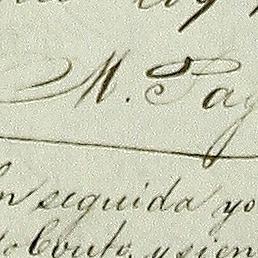 M. Pay
en seguida yo
to Couto, y sien